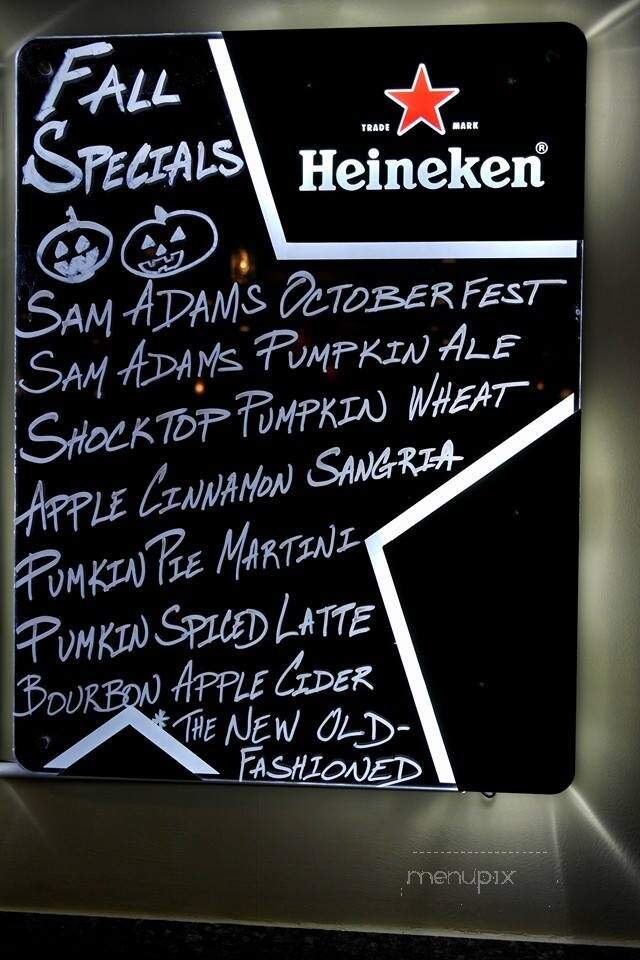 FALL
SPECIALS
TRADE MARK
Heineken®
SAM ADAMS OCTOBERFEST
SAM ADAMS PUMPKIN ALE
SHOCKTOP PUMPKIN WHEAT
APPLE CINNAMON SANGRIA
PUMKIN PIE MARTINI
PUMKIN SPICED LATTE
BOURBON APPLE CIDER
*THE NEW OLD-
FASHIONED
menupix